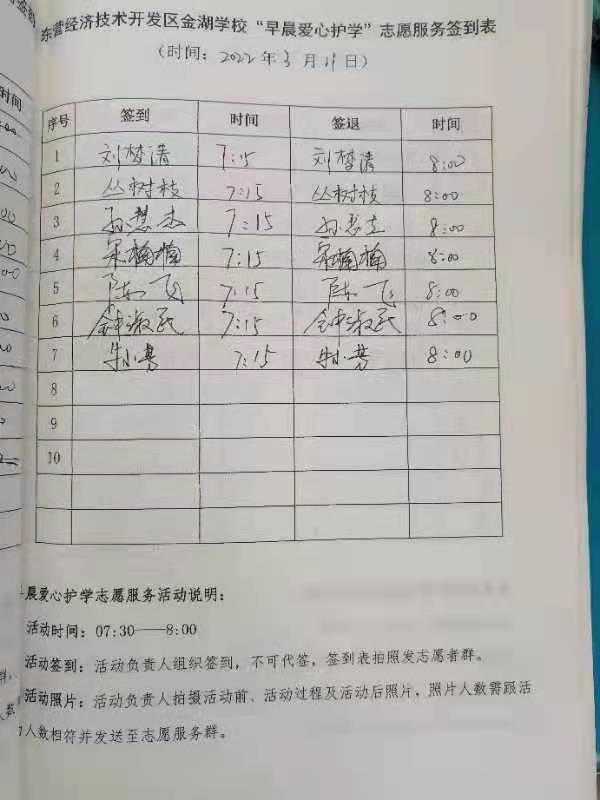 东营经济技术开发区金湖学校“早晨爱心护学”志愿服务签到表
(时间：2022年3月 日)
序号 签到 时间 签退 时间
1 刘梦清 7:15 刘梦清 8:00
2 丛树枝 7:15 丛树枝 8:00
3 孙慧杰 7:15 孙慧杰 8:00
4 宋楠楠 7:15 宋楠楠 8:00
5 陈飞 7:15 陈飞 8:00
6 钟淑民 7:15 钟淑民 8:00
7 朱小芳 7:15 朱小芳 8:00
8
9
10
晨爱心护学志愿服务活动说明：
活动时间：07:30——8:00
活动签到：活动负责人组织签到，不可代签，签到表拍照发志愿者群。
活动照片：活动负责人拍摄活动前、活动过程及活动后照片，照片人数需跟活
人数相符并发送至志愿服务群。